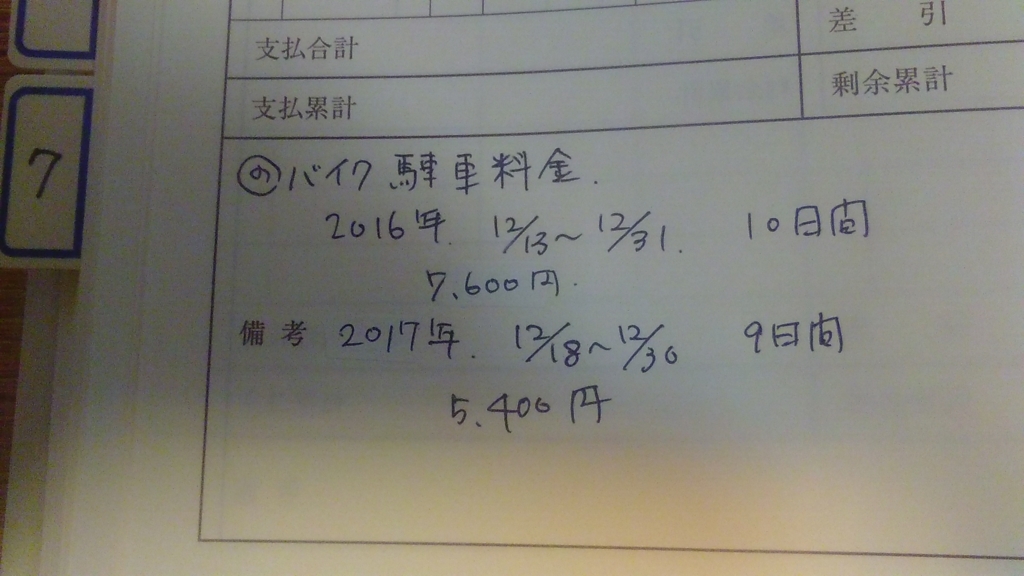 差 引
支払合計
剰余累計
支払累計
7
の バイク駐車料金.
2016年. 12/13~12/31. 10日間
7,600円.
備考 2017年. 12/18~12/30 9日間
5,400円